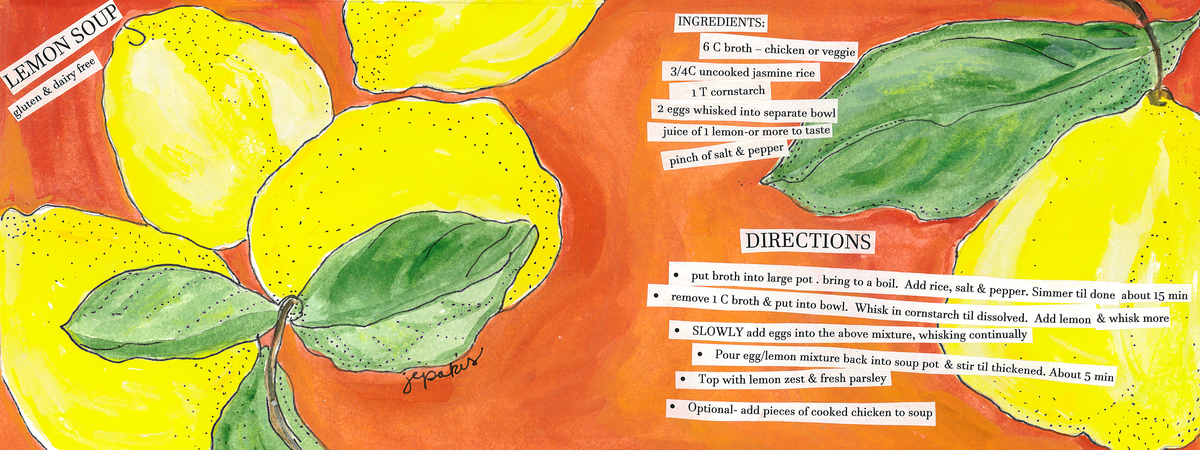 LEMON SOUP
gluten & dairy free
INGREDIENTS:
6 C broth – chicken or veggie
3/4C uncooked jasmine rice
1 T cornstarch
2 eggs whisked into separate bowl
juice of 1 lemon-or more to taste
pinch of salt & pepper
DIRECTIONS
• put broth into large pot . bring to a boil. Add rice, salt & pepper. Simmer til done about 15 min
• remove 1 C broth & put into bowl. Whisk in cornstarch til dissolved. Add lemon & whisk more
• SLOWLY add eggs into the above mixture, whisking continually
• Pour egg/lemon mixture back into soup pot & stir til thickened. About 5 min
• Top with lemon zest & fresh parsley
• Optional- add pieces of cooked chicken to soup
jepakis